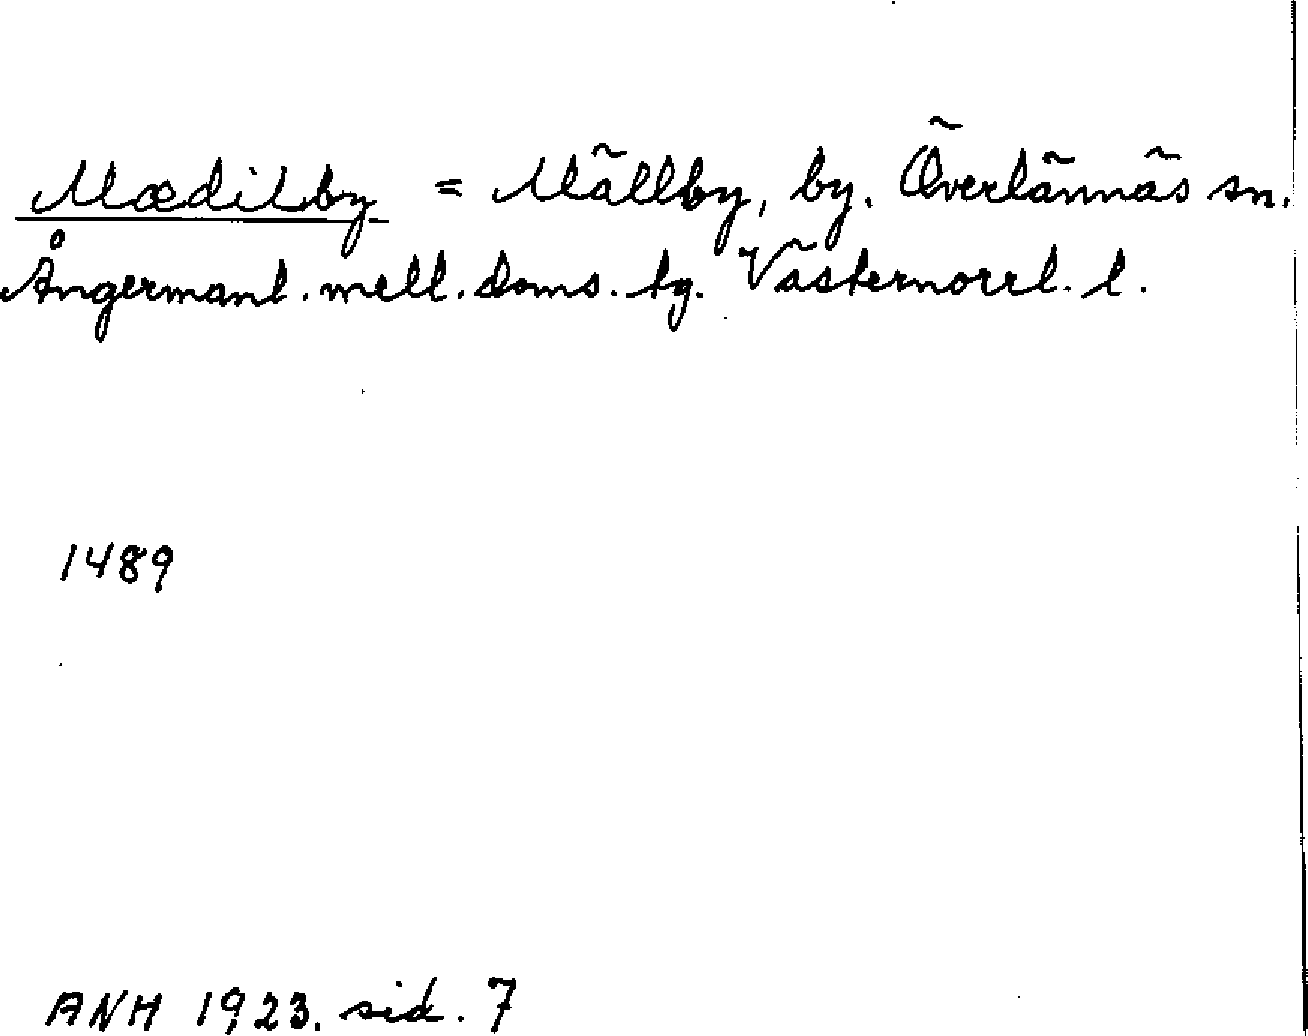 Mædilby = Mällby, by. Överlännäs sn.
Ångermanl. mell. doms. tg. Västernorrl. l.
1489
ANH 1923. sid. 7